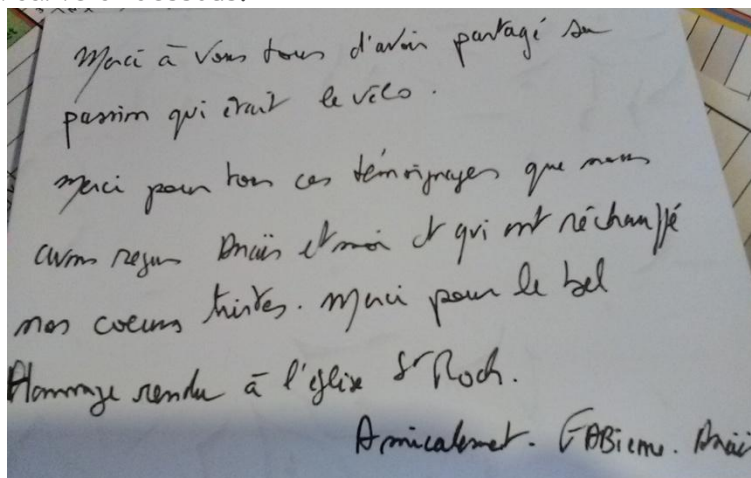 Merci à vous tous d'avoir partagé sa
passion qui était le vélo.
Merci pour tous ces témoignages que nous
avons reçus Anaïs et moi et qui ont réchauffé
nos coeurs tristes. Merci pour le bel
Hommage rendu à l'église St Roch.
Amicalement. FABienne. Anaïs